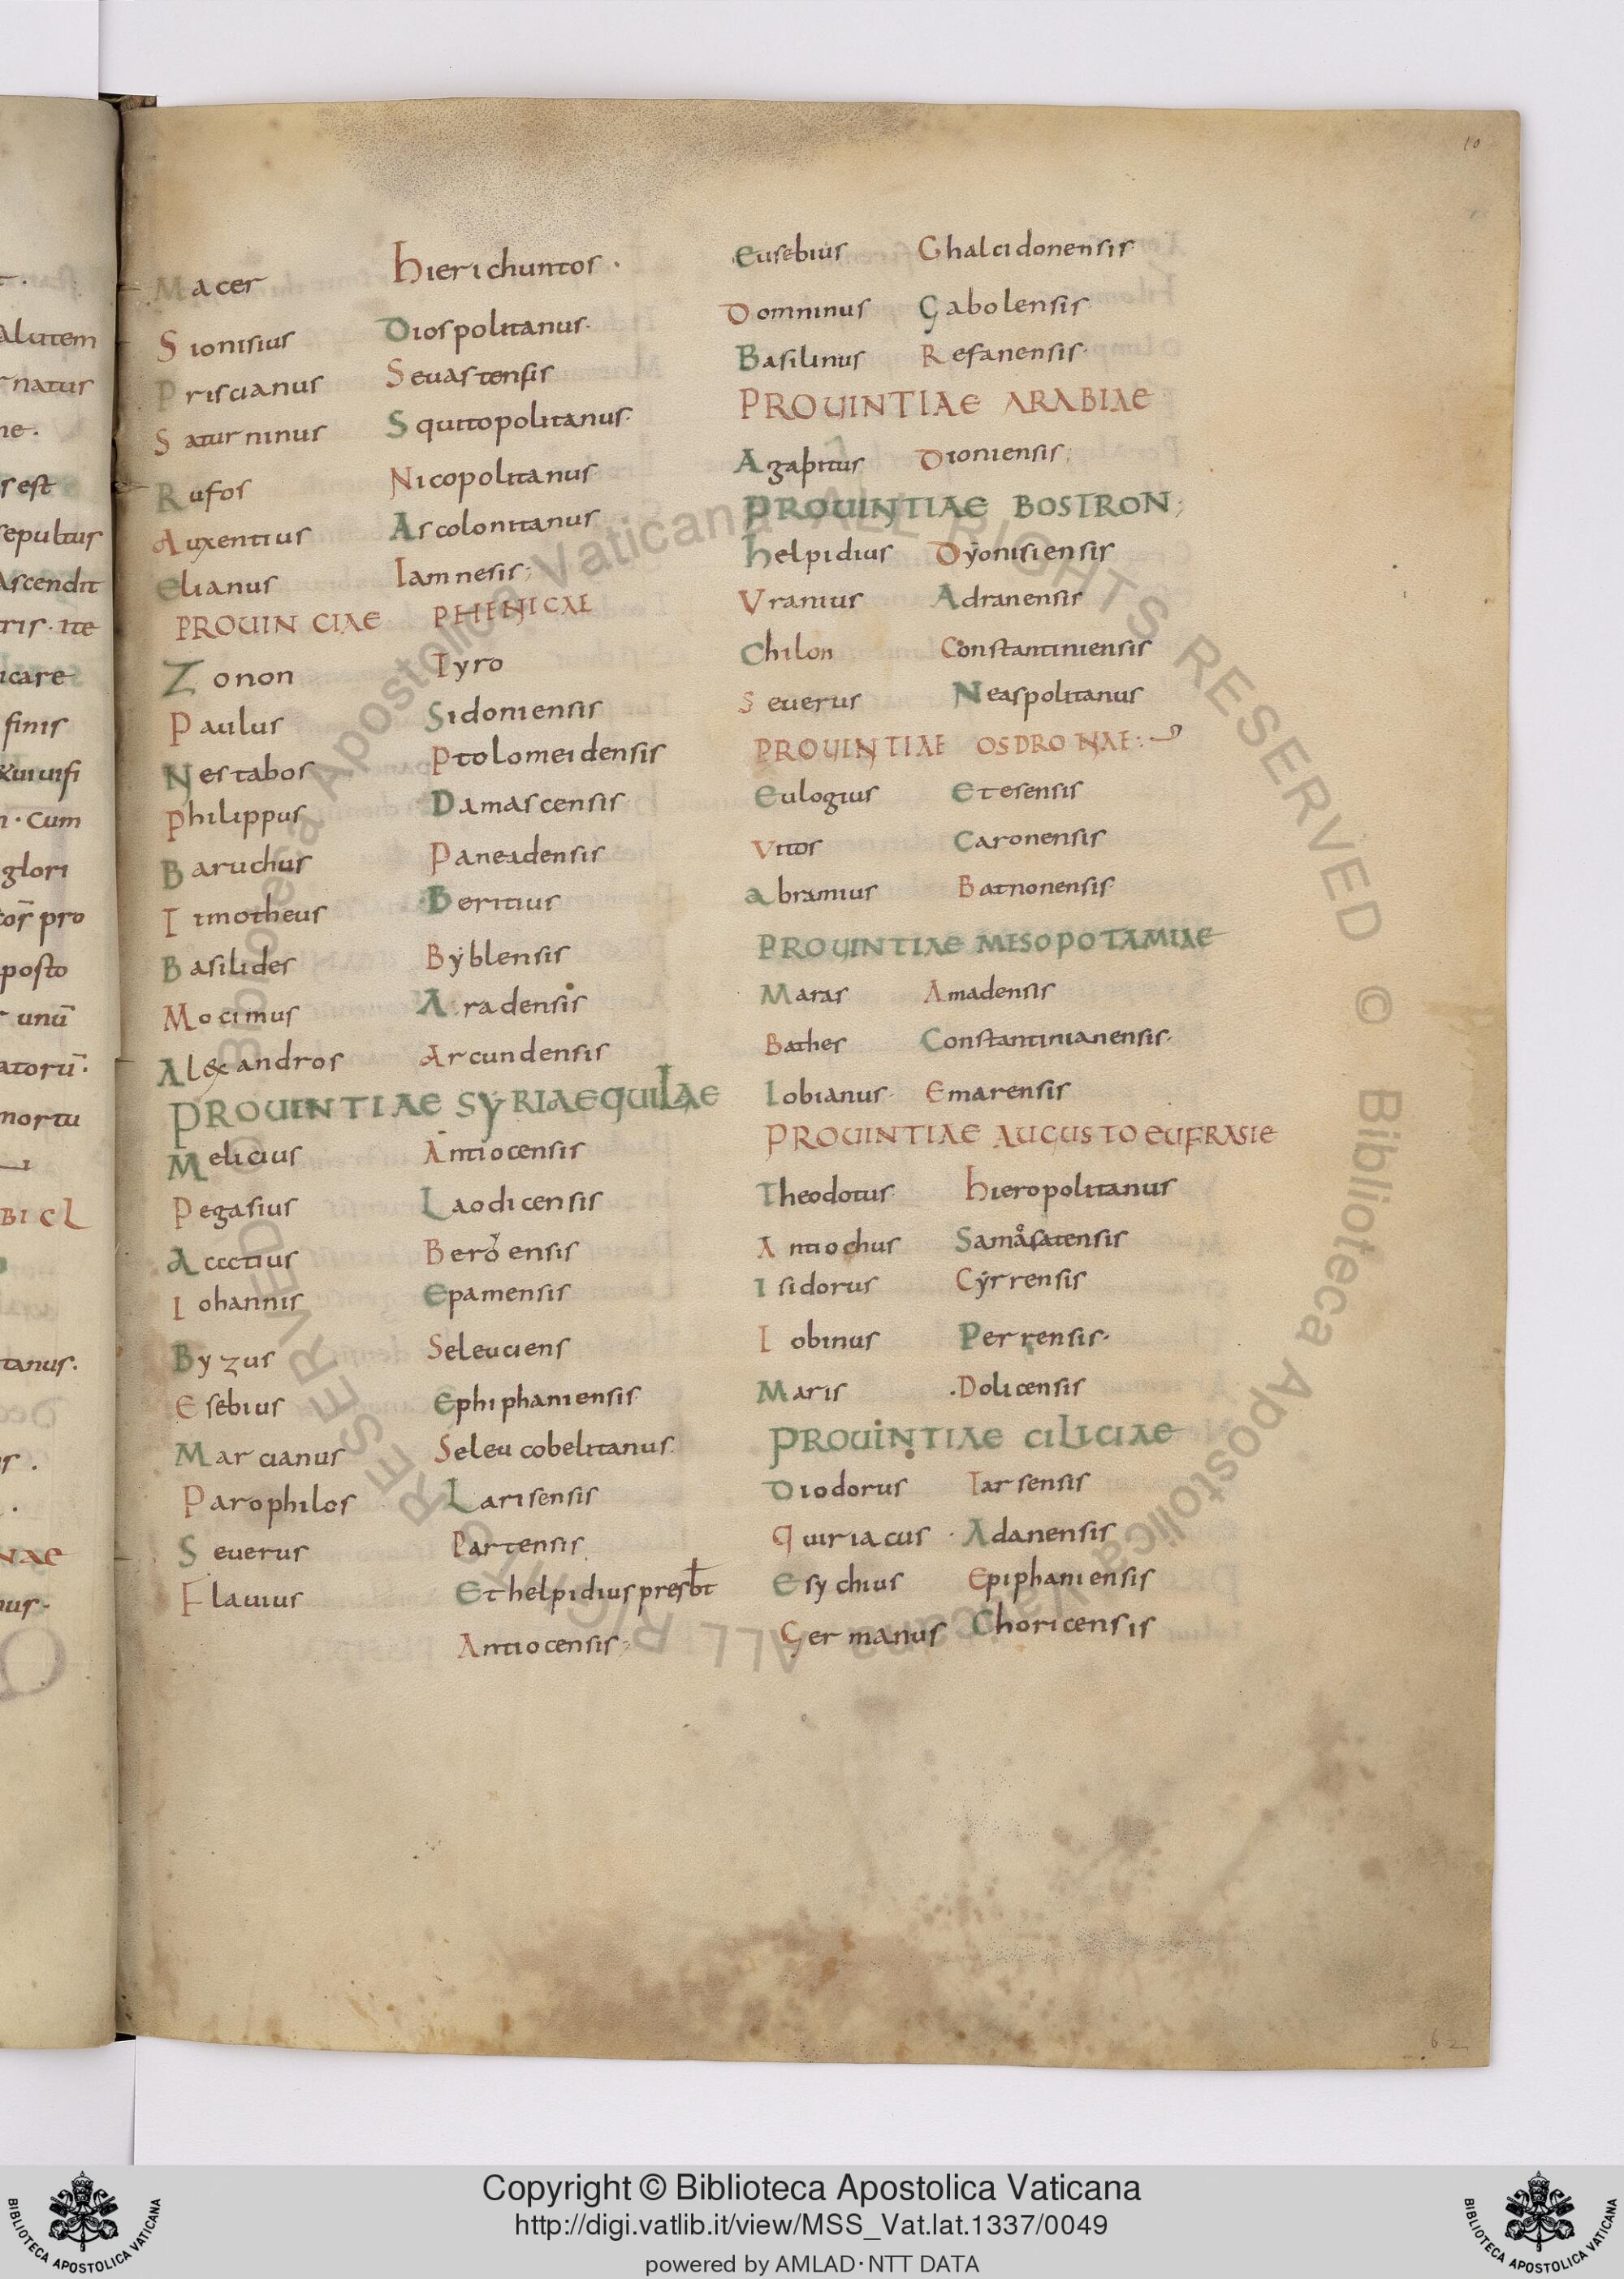 10
Macer hierichuntos.
Sionisius Diospolitanus.
Priscianus Sevastensis
Saturninus Squitopolitanus.
Rufos Nicopolitanus
Auxentius Ascolonitanus
Elianus Iamnesis;
PROUINCIAE PHENICAE
Zonon Tyro
Paulus Sidoniensis
Nestabos Ptolomeidensis
Philippus Damascensis
Baruchus Paneadensis
Timotheus Beritius
Basilides Byblensis
Mocimus Aradensis
Alexandros Arcundensis
PROUINTIAE SYRIAEQUILAE
Melicius Antiocensis
Pegasius Laodicensis
Accctius Beroensis
Iohannis Epamensis
Byzus Seleuciens
Esebius Ephiphaniensis
Marcianus Seleucobelitanus.
Parophilos Larisensis
Seuerus Partensis
Flauius Et helpidius presbt
Antiocensis;
Eusebius Chalcidonensis
Domninus Gabolensis
Basilinus Refanensis
PROUINTIAE ARABIAE
Agapitus Dioniensis;
PROUINTIAE BOSTRON;
helpidius Dyonisiensis
Uranius Adranensis
Chilon Constantiniensis
Seuerus Neaspolitanus
PROUINTIAE OSDRONAE:
Eulogius Etesensis
Vitos Caronensis
abramius Batnonensis
PROUINTIAE MESOPOTAMIAE
Maras Amadensis
Bathes Constantinianensis.
Iobianus Emarensis
PROUINTIAE AUGUSTO EUFRASIE
Theodotus hieropolitanus
Antiochus Samasatensis
Isidorus Cyrrensis
Iobinus Perrensis.
Maris .Dolicensis
PROUINTIAE CILICIAE
Diodorus Tarsensis
Quiriacus Adanensis
Esychius Epiphaniensis
Germanus Choricensis
62
alutem
natus
ne.
s est
sepultus
Ascendit
ris. ite
icare
finis
n. Cum
glori
pro
posto
unū
atorū.
mortu
BICL
tanus.
NAE
nus.
Biblioteca Apostolica Vaticana ALL RIGHTS RESERVED © Biblioteca Apostolica Vaticana ALL RIGHTS RESERVED ©
Copyright © Biblioteca Apostolica Vaticana
http://digi.vatlib.it/view/MSS_Vat.lat.1337/0049
powered by AMLAD·NTT DATA
BIBLIOTECA APOSTOLICA VATICANA
BIBLIOTECA APOSTOLICA VATICANA